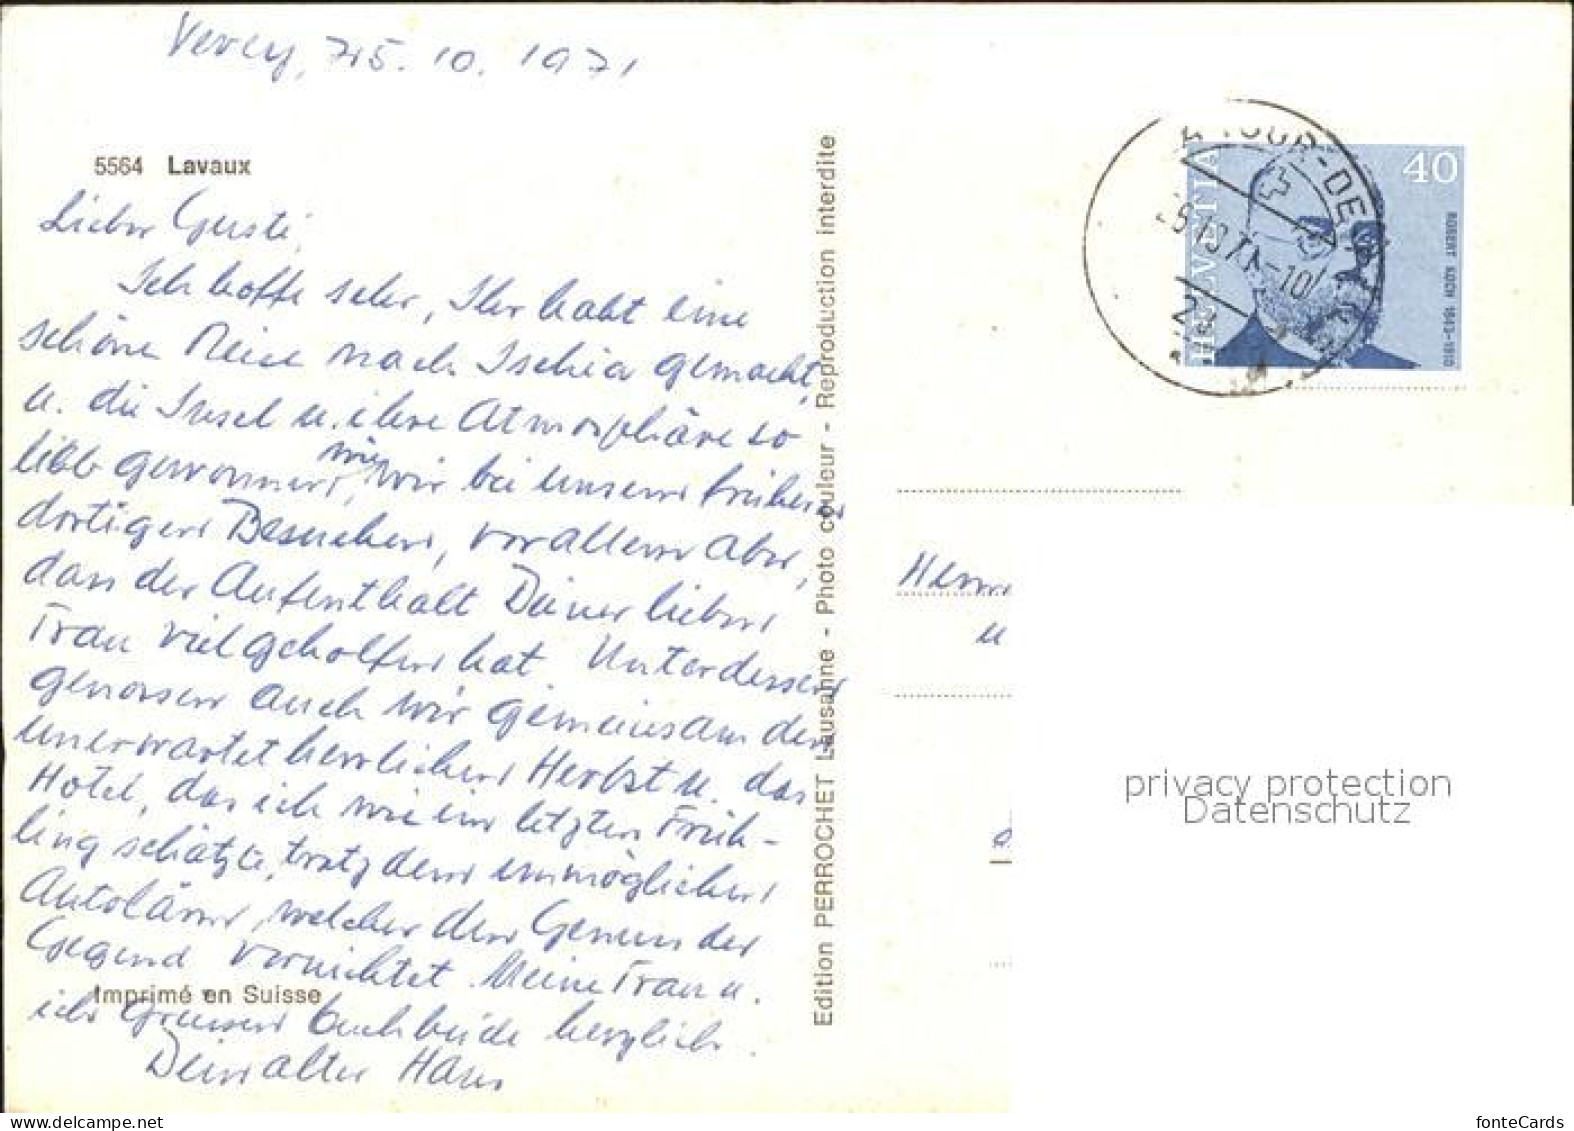 Vevey, 7/5. 10. 1971
5564 Lavaux
Lieber Gusti,
Ich hoffe sehr, Ihr habt eine
schöne Reise nach Ischia gemacht,
u. die Insel u. ihre Atmosphäre so
lieb gewonnen, wie wir bei unseren früheren
dortigen Besuchen, vor allem aber,
dass der Aufenthalt Deiner lieben
Frau viel geholfen hat. Unterdessen
genossen auch wir gemeinsam den
unerwartet herrlichen Herbst u. das
Hotel, das ich wie im letzten Früh-
ling schätze, trotz dem unmöglichen
Autolärm, welcher den Genuss der
Gegend vernichtet. Meine Frau u.
Imprimé en Suisse
ich grüssen Euch beide herzlich.
Dein alter Hans
Edition PERROCHET Lausanne - Photo couleur - Reproduction interdite
TOUR-DE-
-8.10.71-10
HELVETIA
40
ROBERT KOCH 1843-1910
Herrn
u
privacy protection
Datenschutz
fonteCards